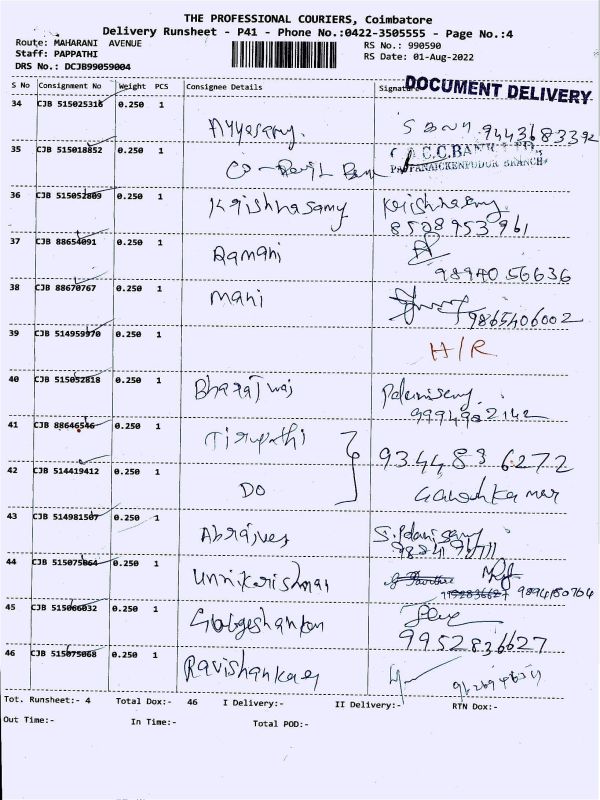 THE PROFESSIONAL COURIERS, Coimbatore
Delivery Runsheet - P41 - Phone No.:0422-3505555 - Page No.:4
Route: MAHARANI AVENUE
Staff: PAPPATHI
DRS No.: DCJB99059004
RS No.: 990590
RS Date: 01-Aug-2022
S No Consignment No Weight PCS Consignee Details Signature
DOCUMENT DELIVERY
34 CJB 515025318 0.250 1
Ayyasamy. 9443683392
35 CJB 515018852 0.250 1
C.C.BANK LTD.,
PAPPANAICKENPUDUR BRANCH
36 CJB 515052809 0.250 1
Krishnasamy Krishnasamy
8528953961
37 CJB 88654091 0.250 1
Ramani
9894056636
38 CJB 88670767 0.250 1
Mani 9865406002
39 CJB 514959970 0.250 1
H/R
40 CJB 515052818 0.250 1
Bharajwaj
9994982142
41 CJB 88646546 0.250 1
Tirupathi 9344836272
42 CJB 514419412 0.250 1
Do
43 CJB 514981507 0.250 1
44 CJB 515075064 0.250 1
Unnikrishnan 9894150704
45 CJB 515066032 0.250 1
9952836627
46 CJB 515075068 0.250 1
Ravishankar
Tot. Runsheet:- 4 Total Dox:- 46 I Delivery:- II Delivery:- RTN Dox:-
Out Time:- In Time:- Total POD:-